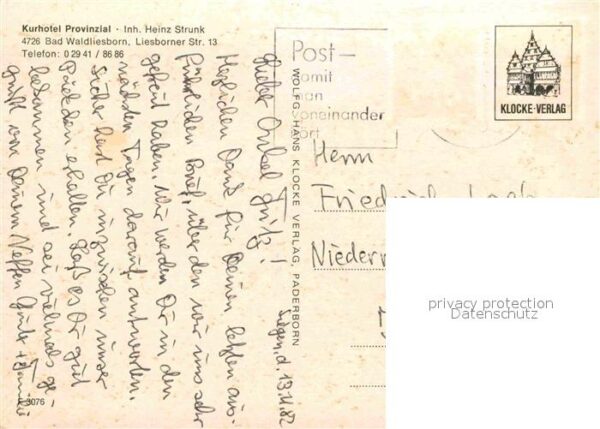 Kurhotel Provinzial · Inh. Heinz Strunk
4726 Bad Waldliesborn, Liesborner Str. 13
Telefon: 0 29 41 / 86 86
Siegen, d. 13.11.82
Lieber Onkel Fritz!
Herzlichen Dank für Deinen letzten aus-
führlichen Brief, über den wir uns sehr
gefreut haben. Wir werden Dir in den
nächsten Tagen darauf antworten.
Sicher hast Du inzwischen unser
Päckchen erhalten. Laß es Dir gut
bekommen und sei vielmals ge-
grüßt von Deinem Neffen Günter + Familie
3076
WOLFG.-HANS KLOCKE VERLAG, PADERBORN
Post-
damit
man
voneinander
hört
KLOCKE-VERLAG
Herrn
Friedrich
Nieder
privacy protection
Datenschutz